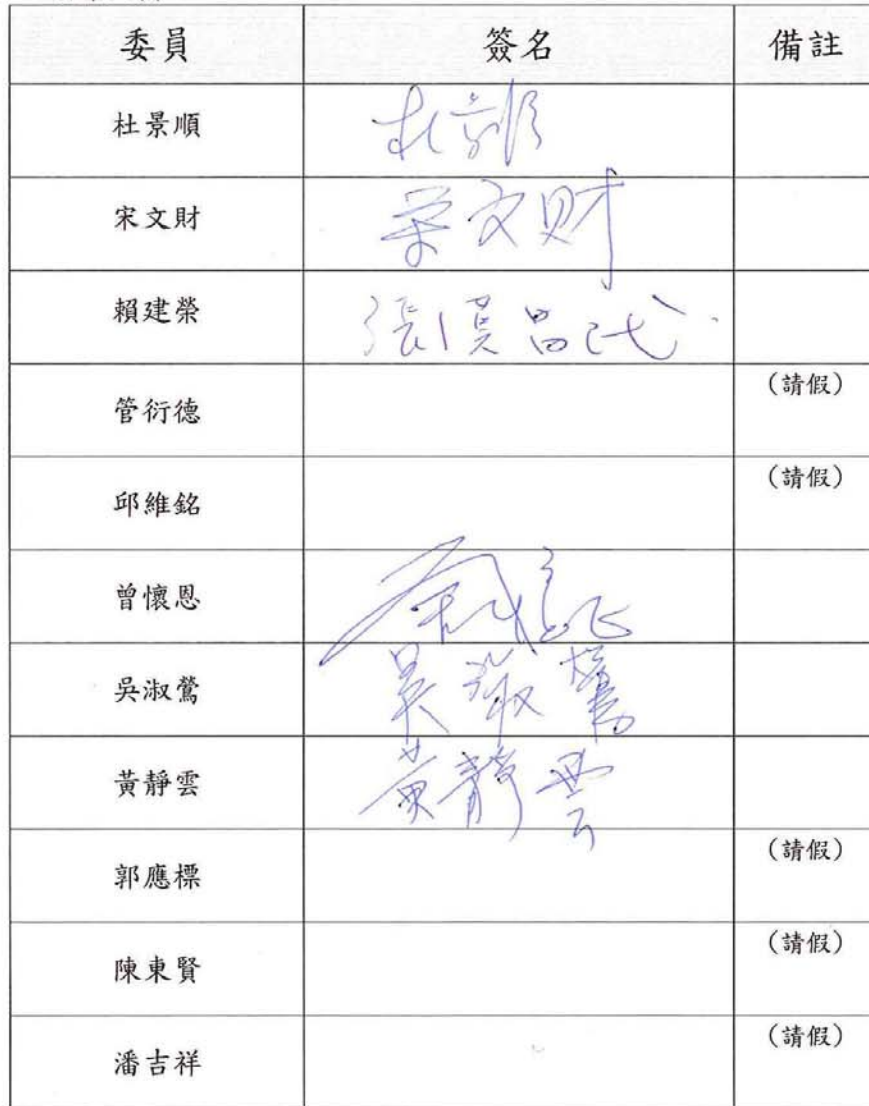 委員 簽名 備註
杜景順 杜景順
宋文財 宋文財
賴建榮 張昌代
管衍德 （請假）
邱維銘 （請假）
曾懷恩
吳淑鶯 吳淑鶯
黃靜雲 黃靜雲
郭應標 （請假）
陳東賢 （請假）
潘吉祥 （請假）